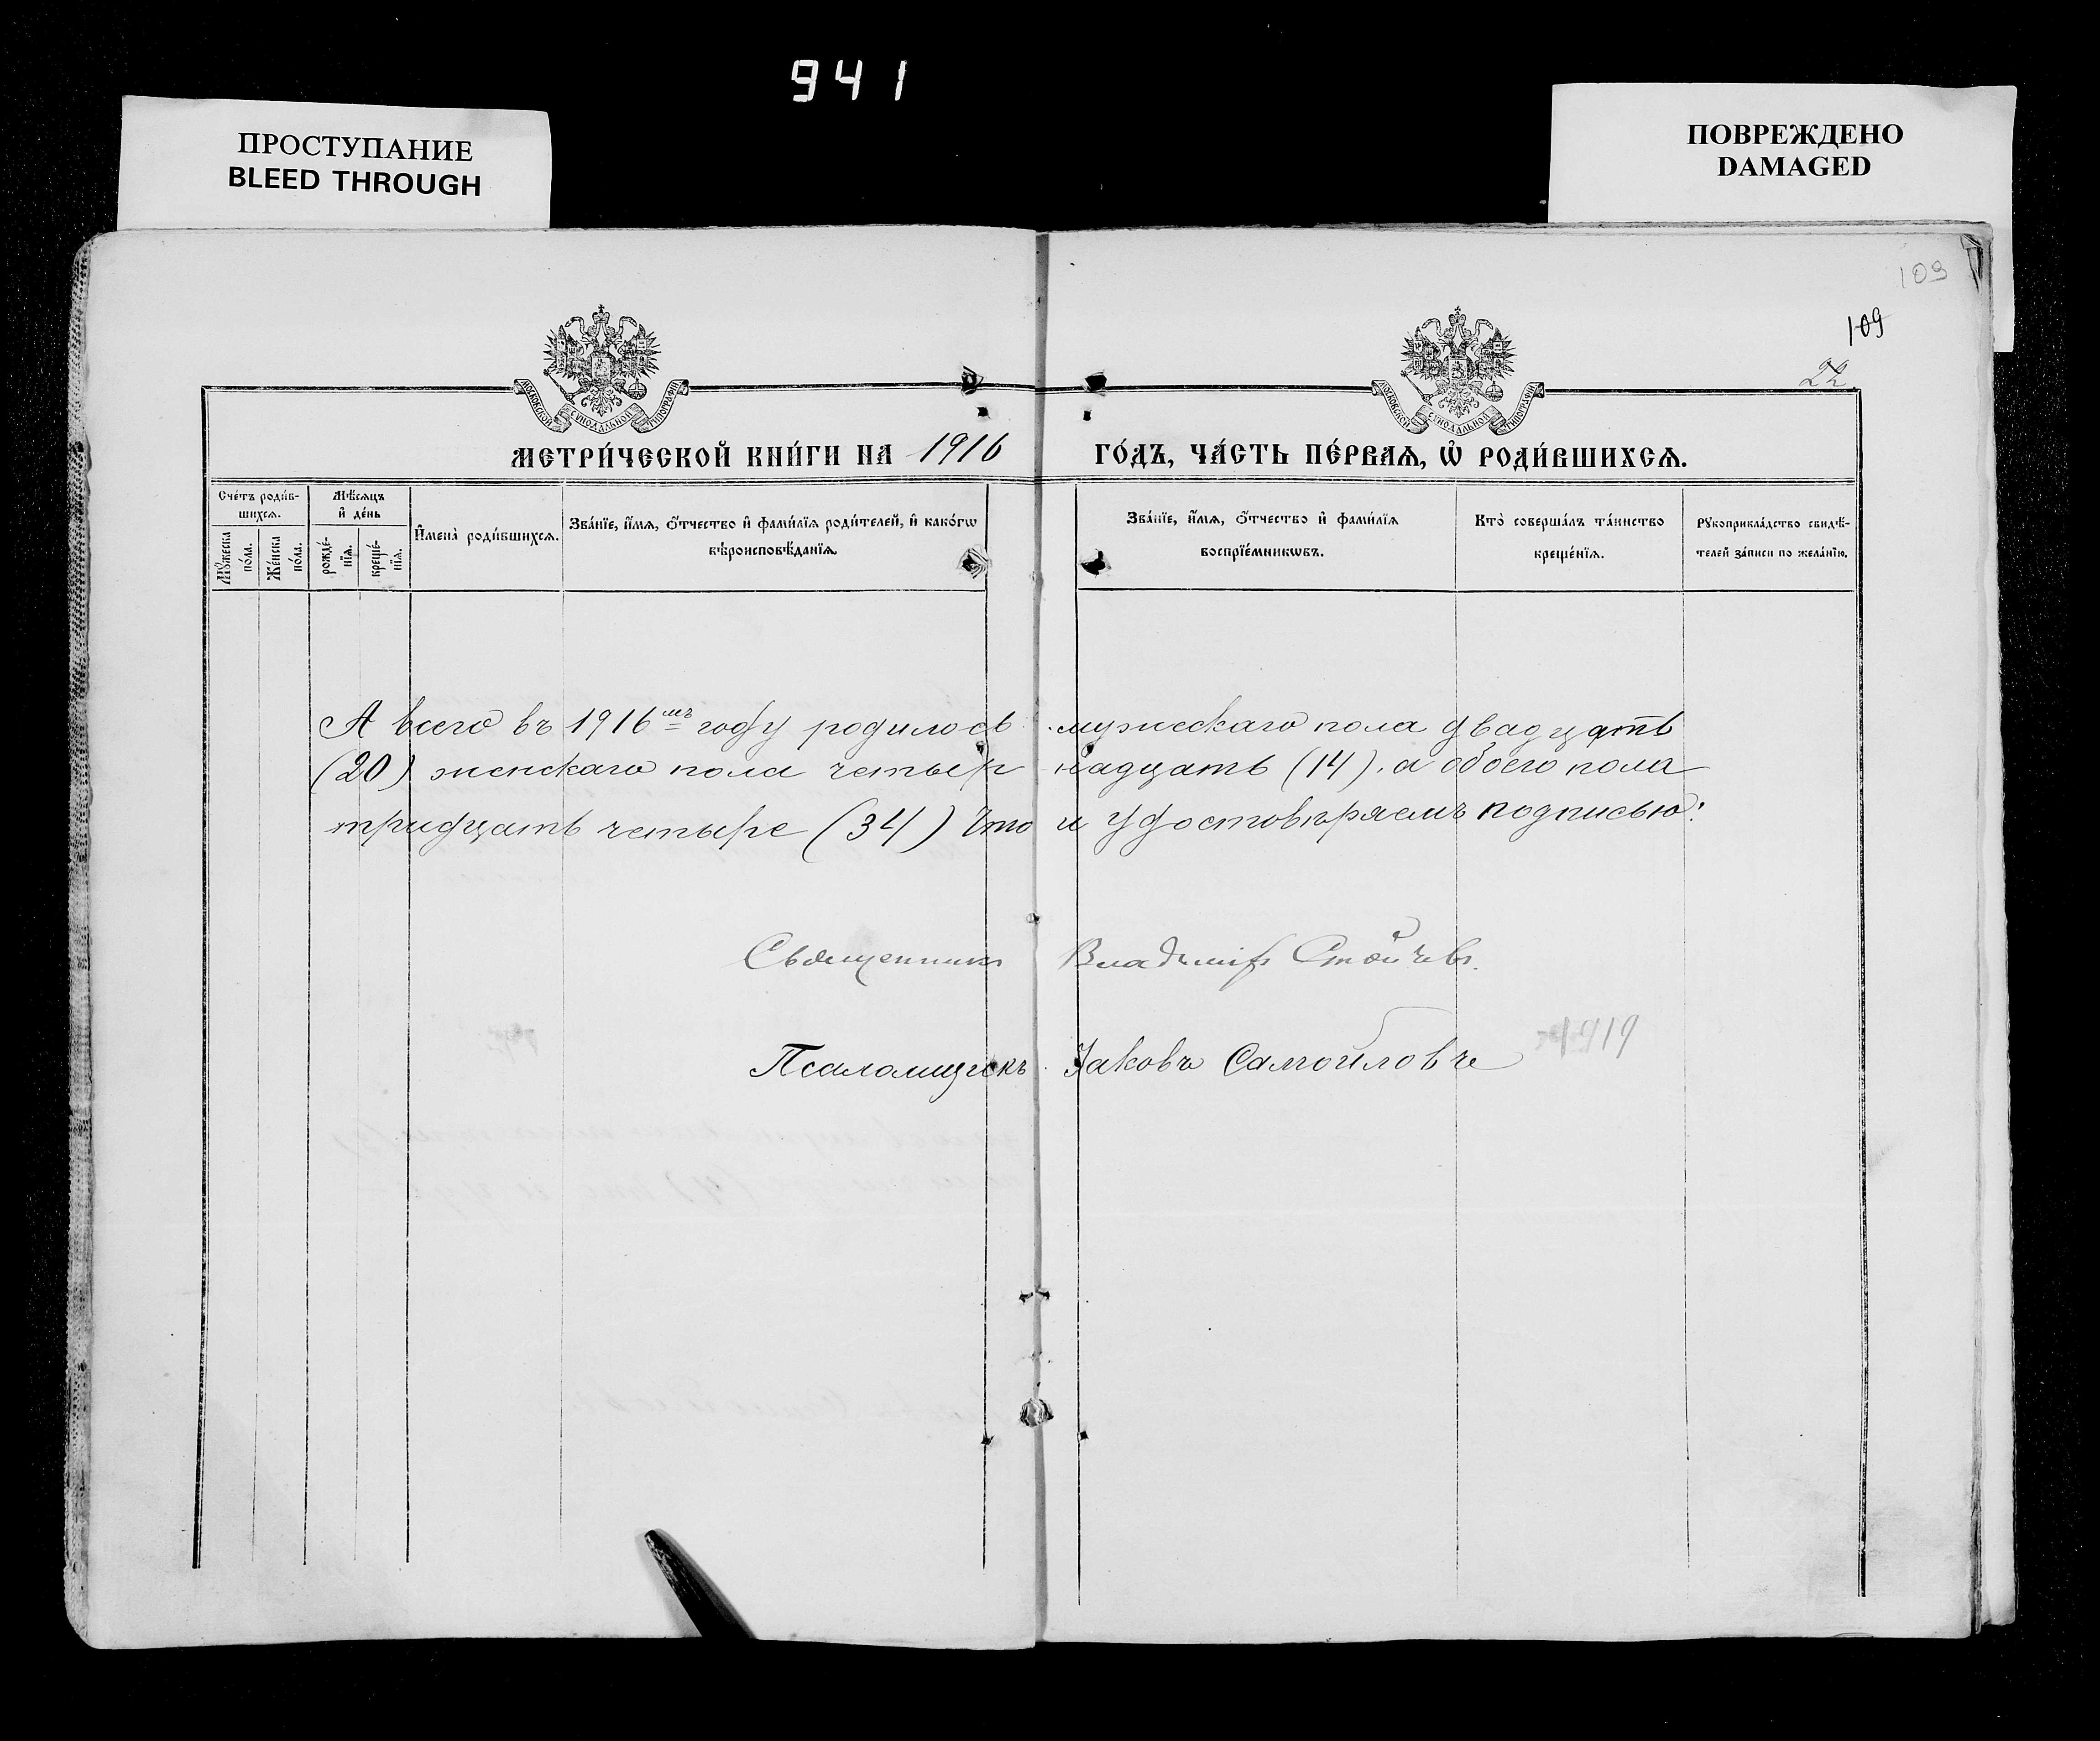 941
ПРОСТУПАНИЕ
BLEED THROUGH
ПОВРЕЖДЕНО
DAMAGED
109
109
22
МЕТРИ́ЧЕСКОЙ КНИ́ГИ НА 1916 ГО́ДЪ, ЧА́СТЬ ПЕ́РВАѦ, Ѡ҆ РОДИ́ВШИХСѦ.
Сче́тъ роди́в-
шихсѧ.
Мꙋ́жеска
по́ла.
Же́нска
по́ла.
Мѣ́сѧцъ
и҆ де́нь
рожде́-
нїѧ.
креще́-
нїѧ.
И҆мена̀ роди́вшихсѧ.
Зва́нїе, и҆́мѧ, ѻ҆́тчество и҆ фами́лїѧ роди́телей, и҆ како́гѡ
вѣроисповѣ́данїѧ.
Зва́нїе, и҆́мѧ, ѻ҆́тчество и҆ фами́лїѧ
воспрїе́мникѡвъ.
Кто̀ соверша́лъ та́инство
креще́нїѧ.
Рꙋкоприкла́дство свидѣ́-
телей за́писи по жела́нїю.
А всего въ 1916мъ году родилось мужескаго пола двадцать
(20) женскаго пола четыр надцать (14), а обоего пола
тридцать четыре (34) Что и удостовѣряемъ подписью:
Священникъ Владиміръ Стойчевъ.
Псаломщикъ Іаковъ Самойловъ
1919